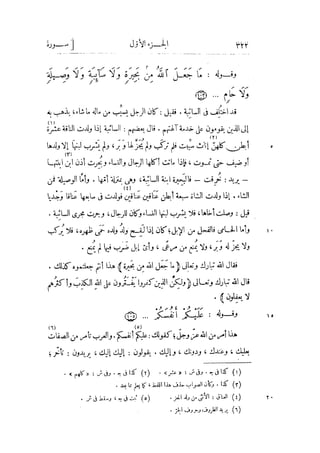 ٣٢٢ الجزء الأول [ سورة
وقوله : مَا جَعَلَ اللّٰهُ مِنْ بَحِيرَةٍ وَلَا سَآئِبَةٍ وَلَا وَصِيلَةٍ
وَلَا حَامٍ ... (١٠٣)
قد اختلف فى السائبة . فقيل : كان الرجل يسيّب من ماله ما شاء ، يذهب به
إلى الذين يقومون على خدمة آلهتهم . قال بعضهم : السائبة إذا ولدت الناقة عشرة (١)
٥ أبطن كلهنّ (٢) إناث سيّبت فلم تركب ولم يجزّ لها وَبَر ، ولم يشرب لبنها إلا ولدها
أو ضيف حتى تموت ، فإذا ماتت أكلها الرجال والنساء وبُحِرت أذن ابنتها
— يريد : تُحرقت — فالبحيرة ابنة السائبة ، وهى بمنزلة أمّها . وأمّا الوصيلة فمن
الشاء . إذا ولدت الشاة سبعة أبطن عَناقَين عَناقَين (٤) فولدت فى سابعها عَناقا وجَدْيا
قيل : وصلت أخاها ، فلا يشرب لبنها النساء وكان للرجال ، وجرت مجرى السائبة .
١٠ وأما الحامى فالفحل من الإبل ؛ كان إذا لقح ولدُ ولدِه حَمَى ظهره ، فلا يُركب
ولا يجزّ له وَبَر ، ولا يُمنع من مرعًى ، وأىّ إبل ضَرب فيها لم يُمنع .
فقال الله تبارك وتعالى ﴿ ما جعل الله من بحيرة ﴾ هذا أنتم جعلتموه كذلك .
قال الله تبارك وتعالى ﴿ ولكنّ الذين كفروا يفترون على الله الكذب وأكثرهم
لا يعقلون ﴾ .
١٥ وقوله : عَلَيْكُمْ أَنْفُسَكُمْ ... (١٠٥)
هذا أمر من الله عزّ وجلّ ؛ كقولك : عليكم (٥) أنفسكم . والعرب تأمر من الصفات (٦)
بعليك ، وعندك ، ودونك ، وإليك . يقولون : إليك إليك ، يريدون : تأخّر ؛
(١) كذا فى ج . وفى ش : « عشر » . (٢) كذا فى ج . وفى ش : « كلهم » .